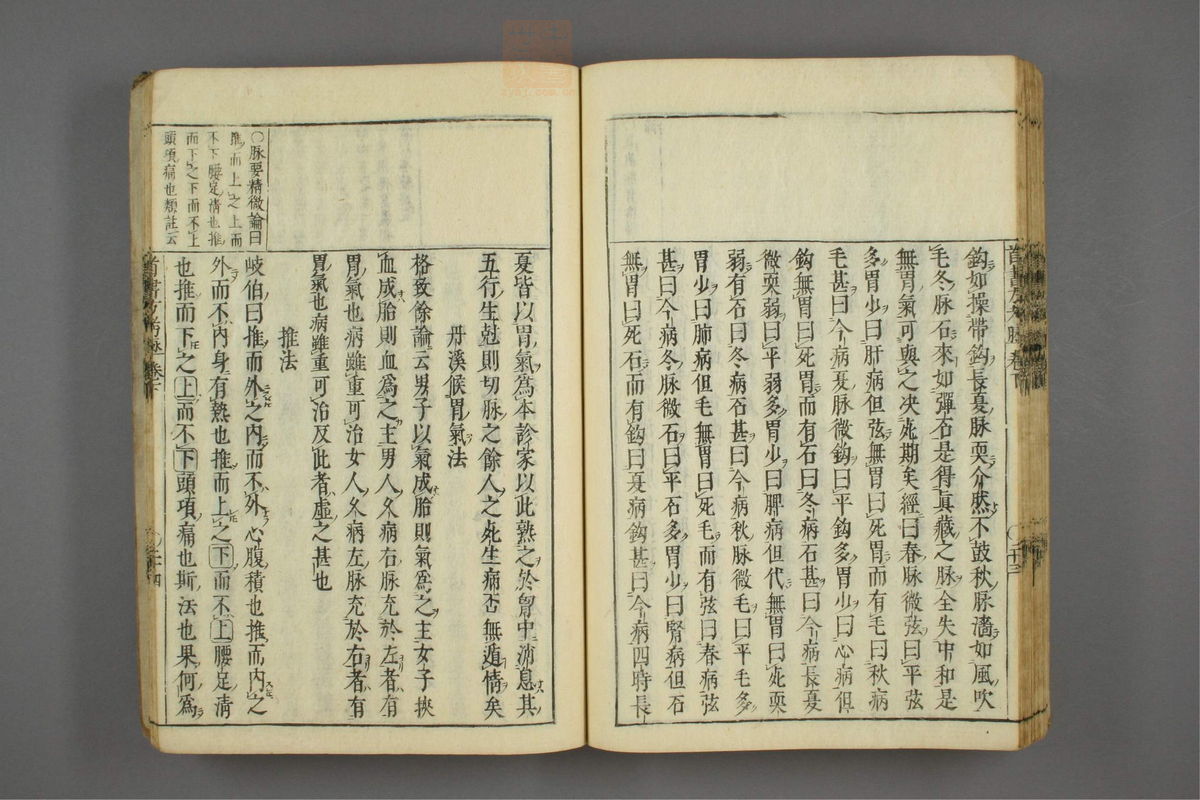 鈎如操帶鈎長夏脉耎介然不鼓秋脉濇如風吹
毛冬脉石來如彈石是得眞藏之脉全失中和是
無胃氣可與之决死期矣經曰春脉微弦曰平弦
多胃少曰肝病但弦無胃曰死胃而有毛曰秋病
毛甚曰今病夏脉微鈎曰平鈎多胃少曰心病但
鈎無胃曰死胃而有石曰冬病石甚曰今病長夏
微耎弱曰平弱多胃少曰脾病但代無胃曰死耎
弱有石曰冬病石甚曰今病秋脉微毛曰平毛多
胃少曰肺病但毛無胃曰死毛而有弦曰春病弦
甚曰今病冬脉微石曰平石多胃少曰腎病但石
無胃曰死石而有鈎曰夏病鈎甚曰今病四時長
夏皆以胃氣爲本診家以此熟之於胷中消息其
五行生尅則切脉之餘人之死生病否無遁情矣
丹溪候胃氣法
格致餘論云男子以氣成胎則氣爲之主女子挾
血成胎則血爲之主男人久病右脉充於左者有
胃氣也病雖重可治女人久病左脉充於右者有
胃氣也病雖重可治反此者虛之甚也
推法
岐伯曰推而外之内而不外心腹積也推而内之
外而不内身有熱也推而上之下而不上腰足清
也推而下之上而不下頭項痛也斯法也果何爲
〇脉要精微論曰
推而上之上而
不下腰足清也推
而下之下而不上
頭項痛也類註云